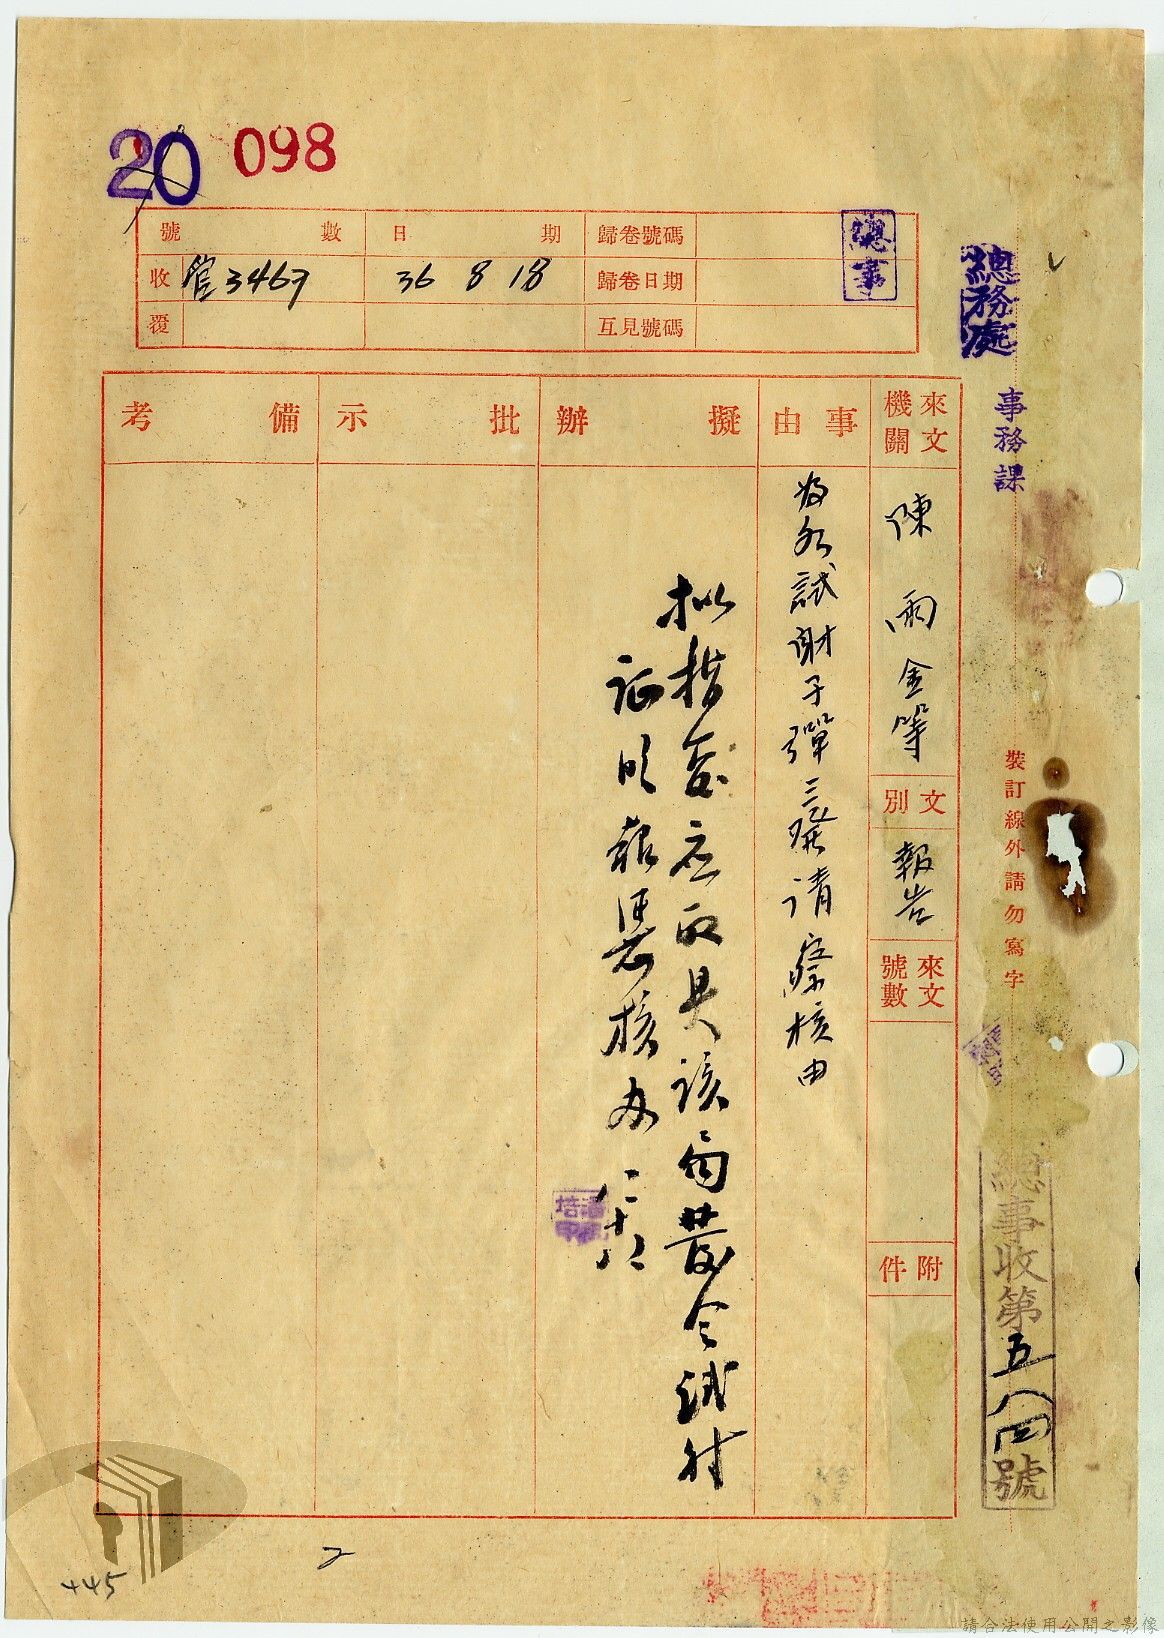 20 098
號數 日期 歸卷號碼
收 管3467 36 8 18 歸卷日期
覆 互見號碼
總務處
事務課
裝訂線外請勿寫字
總事收第五八四號
來文機關 陳雨金等
文別 報告
來文號數
附件
事由
為冬試射子彈三發請察核由
擬辦
拟指令应取具该局发令試射
证明报凴核办
批示
備考
2
445
請合法使用公開之影像